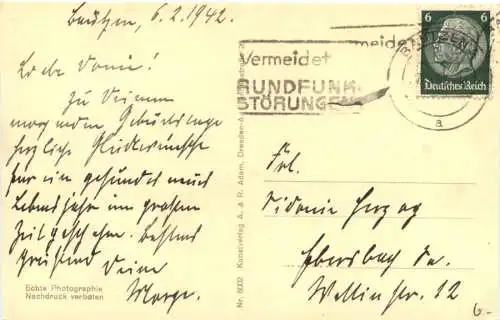 Bautzen, 6.2.1942.
Liebe Doni!
Zu Deinem
morgenden Geburtstage
herzliche Glückwünsche
für ein gesundes neues
Lebensjahr im großen
Zeitgeschehen. Bestens
grüßend Deine
Marga.
Echte Photographie
Nachdruck verboten
Nr. 6002 Kunstverlag A. & R. Adam, Dresden-A.
Vermeidet
RUNDFUNK-
STÖRUNG
BAUTZEN
a
6 6
Deutsches Reich
Frl.
Sidonie Herzog
Ebersbach Sa.
Wettinstr. 12
6-